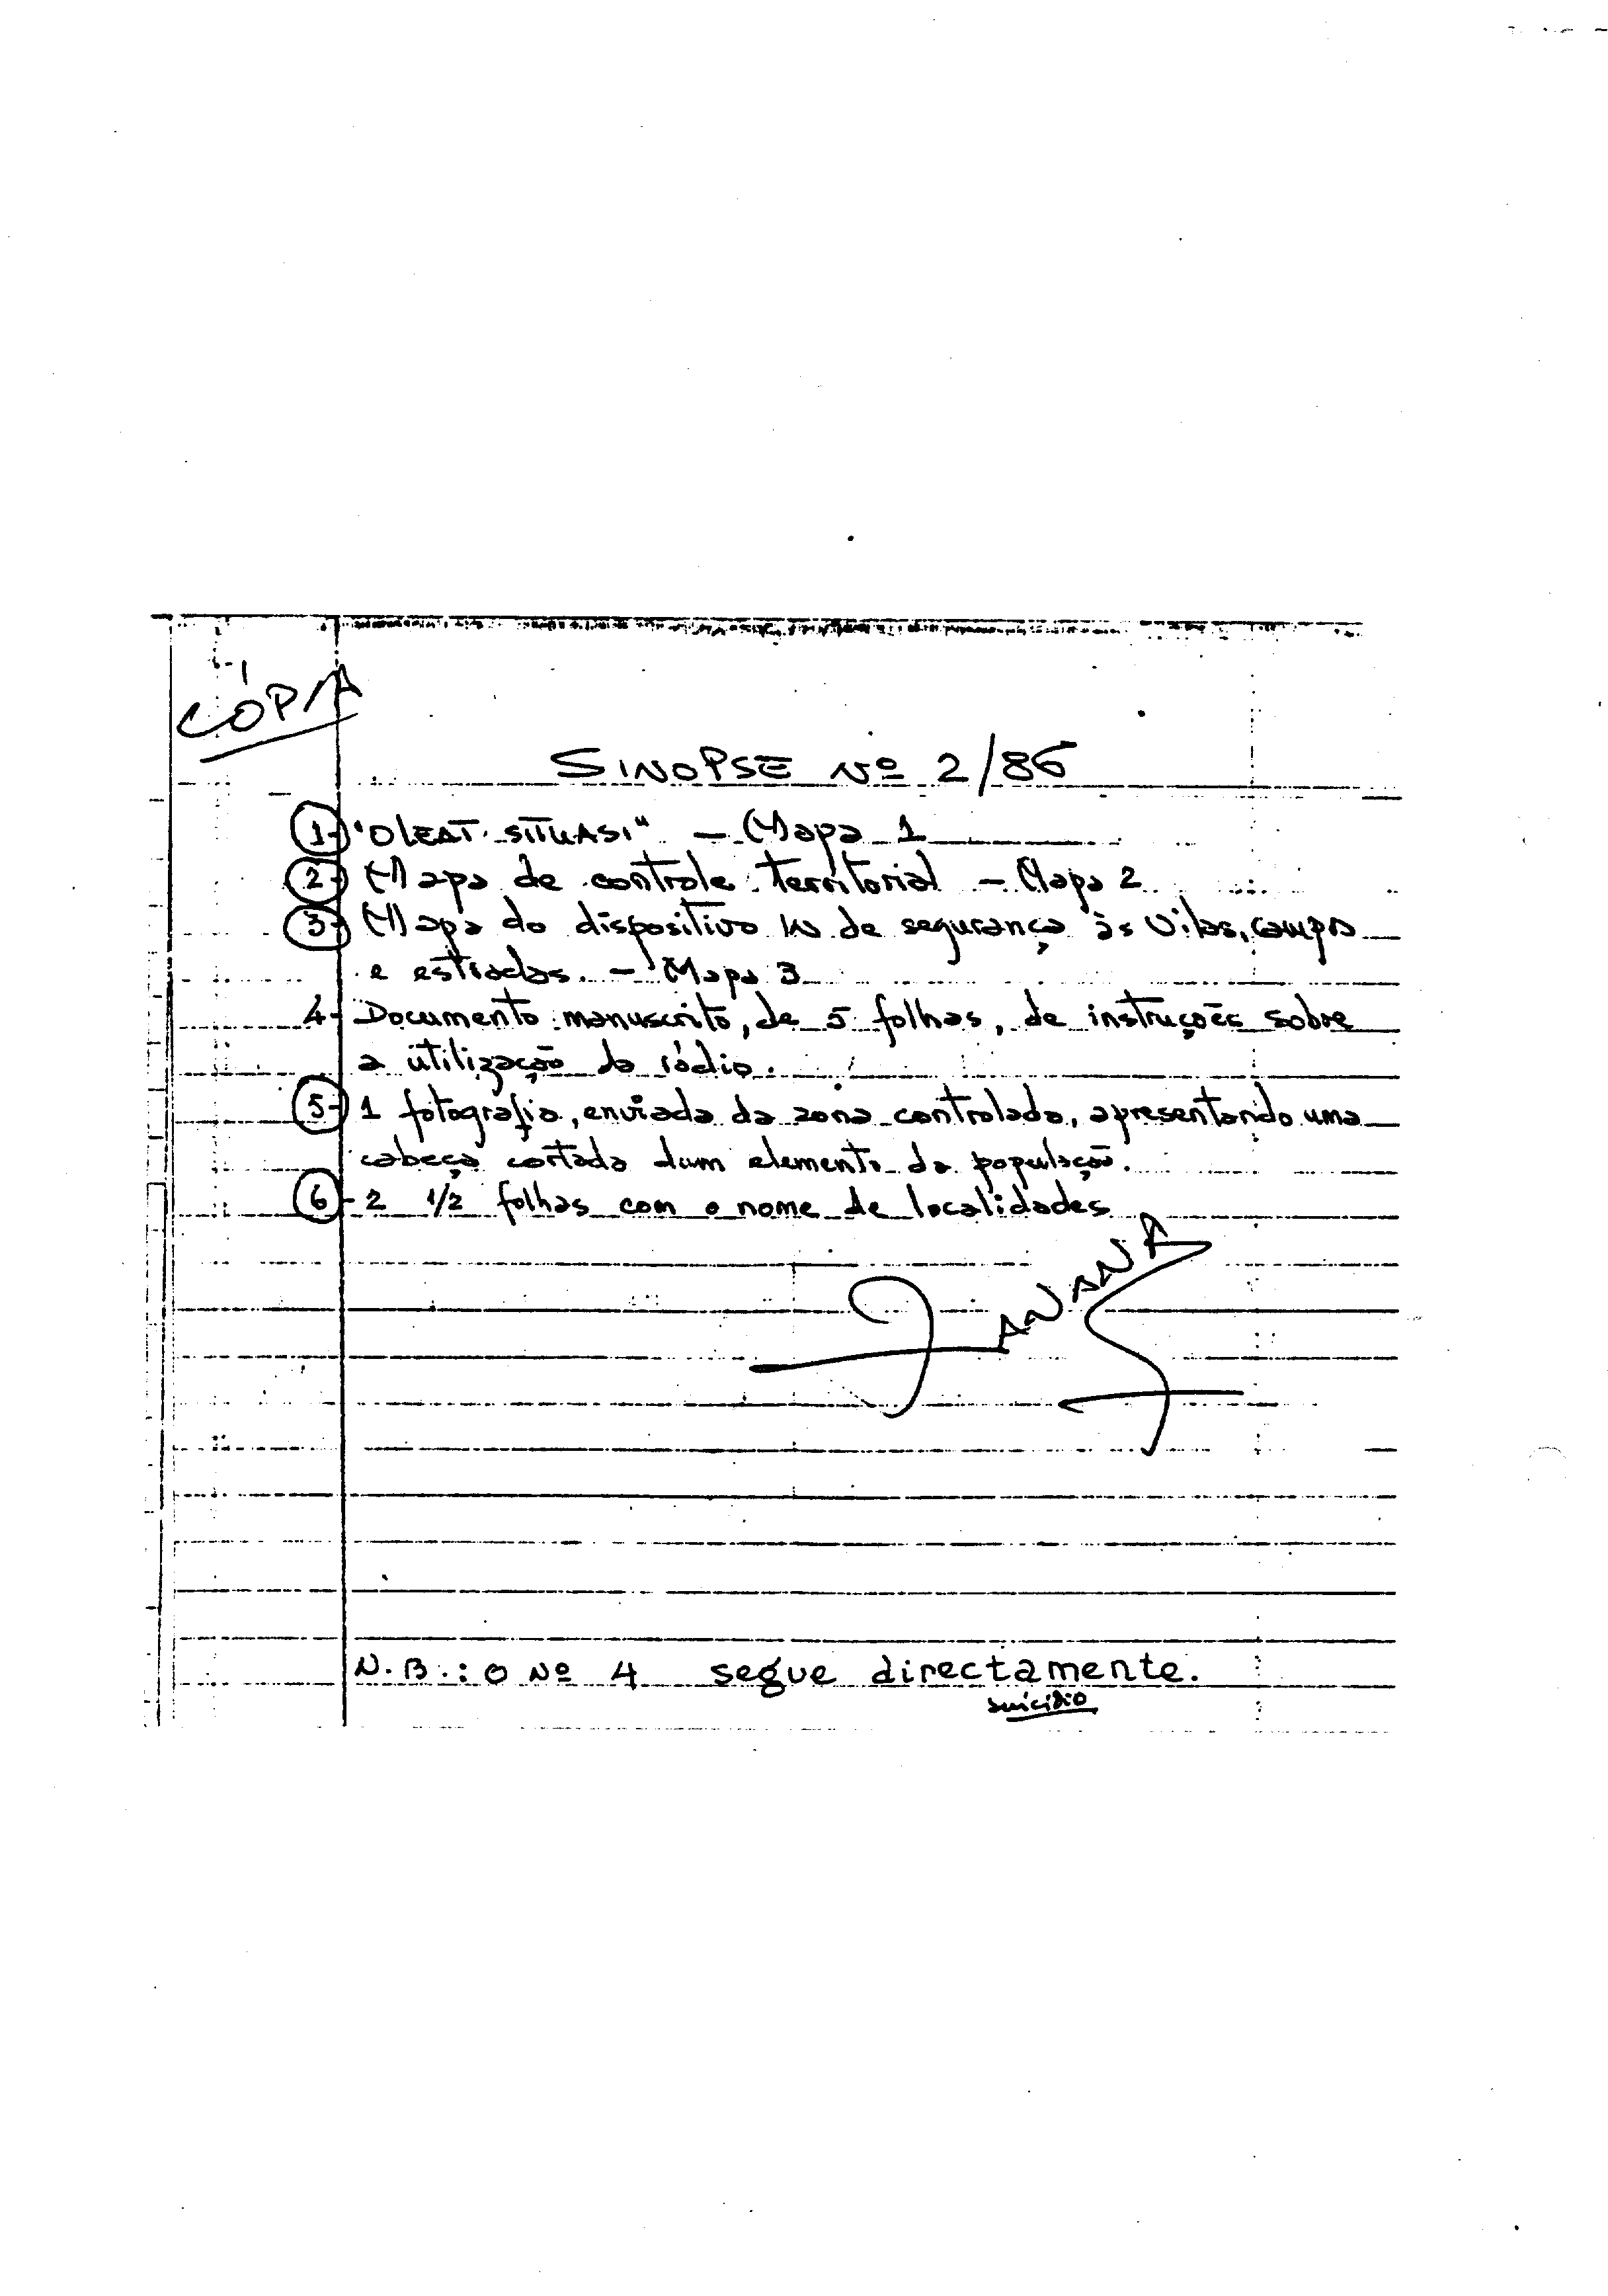 CÓPIA
SINOPSE Nº 2/86
1- "OLEAT SITUASI" - Mapa 1
2- Mapa de controle territorial - Mapa 2
3- Mapa do dispositivo IN de segurança às vilas, campo
e estradas. - Mapa 3
4- Documento manuscrito, de 5 folhas, de instruções sobre
a utilização da rádio.
5- 1 fotografia, enviada da zona controlada, apresentando uma
cabeça cortada dum elemento da população.
6- 2 1/2 folhas com o nome de localidades
N.B.: O Nº 4 segue directamente.
suicídio